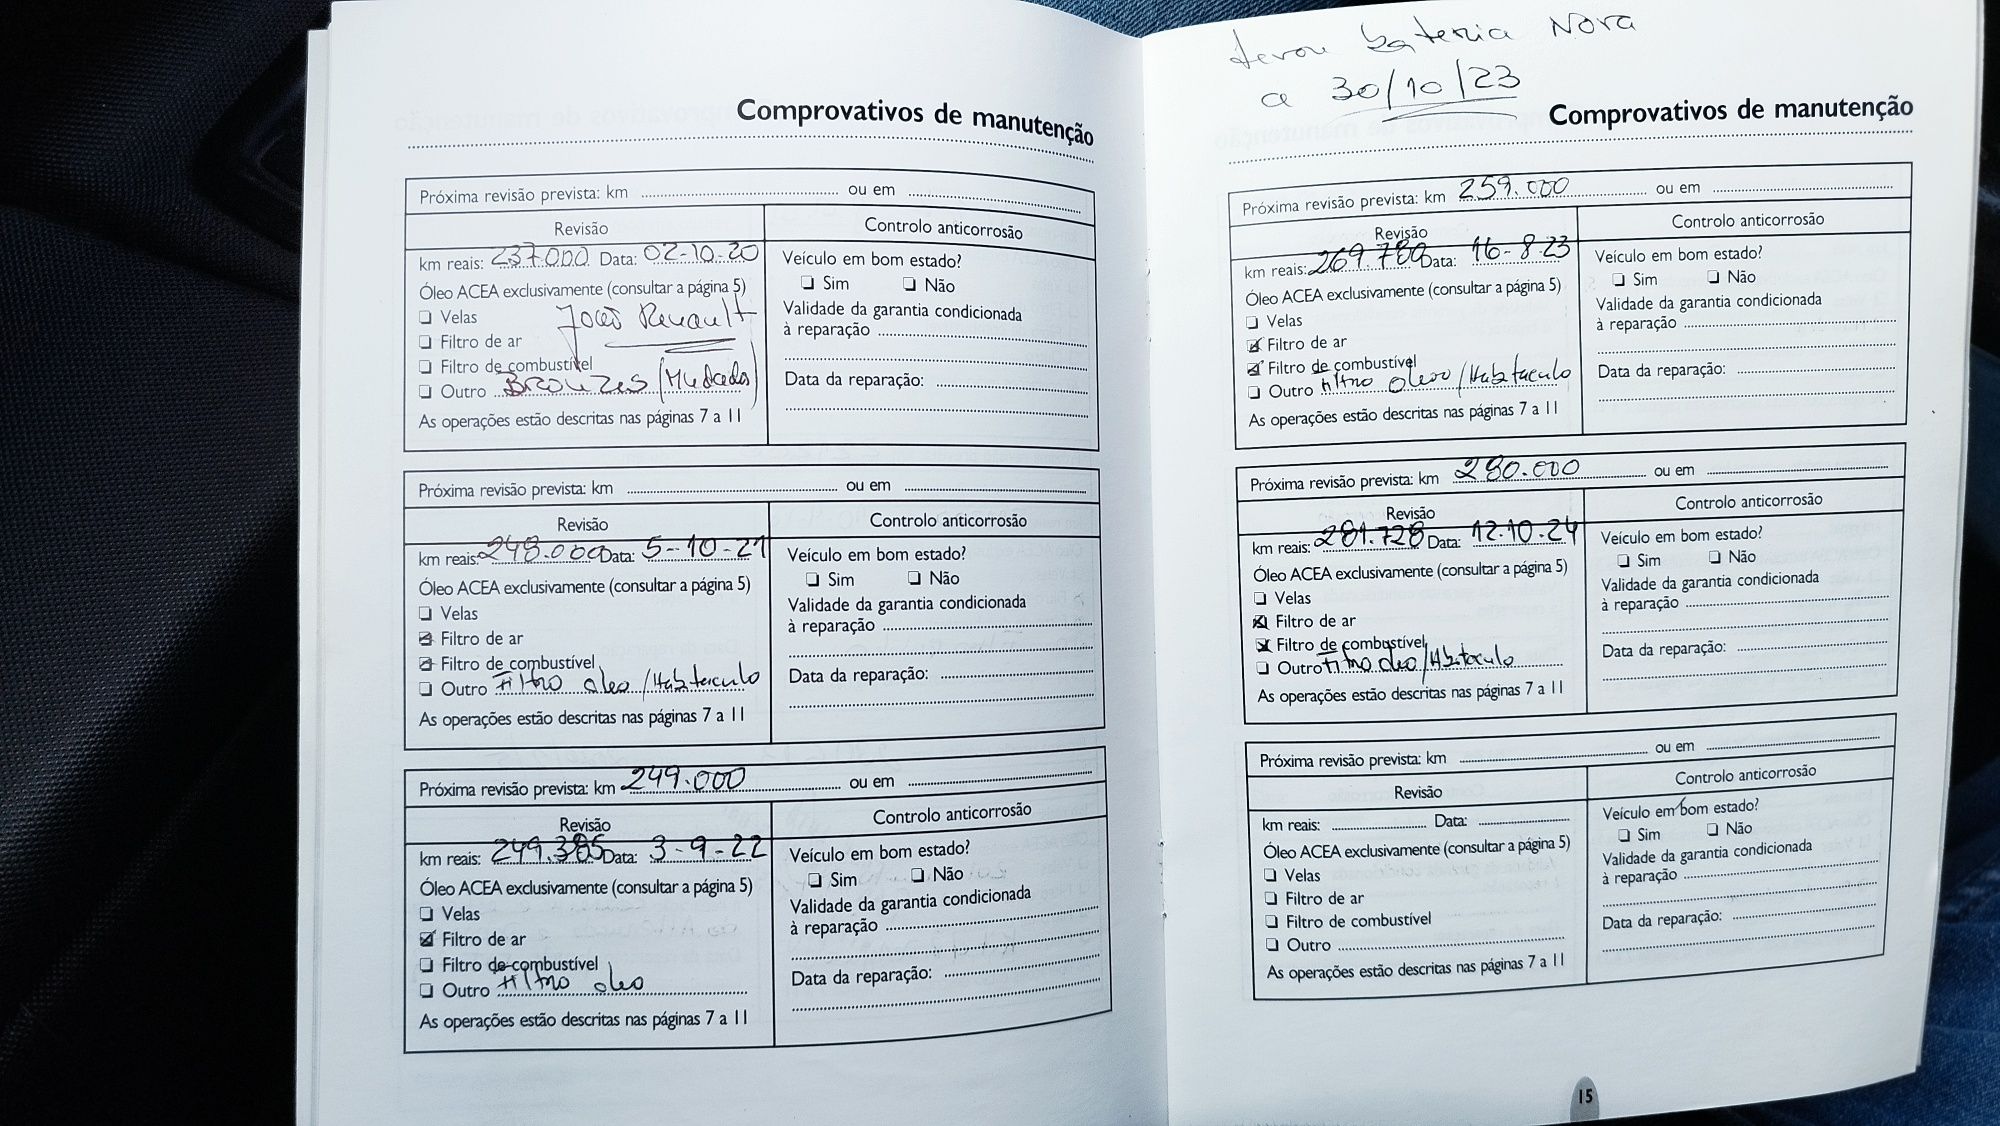 Comprovativos de manutenção
Próxima revisão prevista: km ou em
Revisão
Controlo anticorrosão
km reais: 237.000 Data: 02-10-20
Óleo ACEA exclusivamente (consultar a página 5)
Velas
João Renault
Filtro de ar
Filtro de combustível
Outro Bronzes (Mudados)
As operações estão descritas nas páginas 7 a 11
Veículo em bom estado?
Sim Não
Validade da garantia condicionada
à reparação
Data da reparação:
Próxima revisão prevista: km ou em
Revisão
Controlo anticorrosão
km reais: 248.000 Data: 5-10-21
Óleo ACEA exclusivamente (consultar a página 5)
Velas
Filtro de ar
Filtro de combustível
Outro Filtro oleo/Habitaculo
As operações estão descritas nas páginas 7 a 11
Veículo em bom estado?
Sim Não
Validade da garantia condicionada
à reparação
Data da reparação:
Próxima revisão prevista: km 249.000 ou em
Revisão
Controlo anticorrosão
km reais: 249.385 Data: 3-9-22
Óleo ACEA exclusivamente (consultar a página 5)
Velas
Filtro de ar
Filtro de combustível
Outro Filtro oleo
As operações estão descritas nas páginas 7 a 11
Veículo em bom estado?
Sim Não
Validade da garantia condicionada
à reparação
Data da reparação:
levou bateria Nova
a 30/10/23
Comprovativos de manutenção
Próxima revisão prevista: km 259.000 ou em
Revisão
Controlo anticorrosão
km reais: 269.780 Data: 16-8-23
Óleo ACEA exclusivamente (consultar a página 5)
Velas
Filtro de ar
Filtro de combustível
Outro filtro oleo/Habitaculo
As operações estão descritas nas páginas 7 a 11
Veículo em bom estado?
Sim Não
Validade da garantia condicionada
à reparação
Data da reparação:
Próxima revisão prevista: km 280.000 ou em
Revisão
Controlo anticorrosão
km reais: 281.728 Data: 12.10.24
Óleo ACEA exclusivamente (consultar a página 5)
Velas
Filtro de ar
Filtro de combustível
Outro filtro oleo/Habitaculo
As operações estão descritas nas páginas 7 a 11
Veículo em bom estado?
Sim Não
Validade da garantia condicionada
à reparação
Data da reparação:
Próxima revisão prevista: km ou em
Revisão
Controlo anticorrosão
km reais: Data:
Óleo ACEA exclusivamente (consultar a página 5)
Velas
Filtro de ar
Filtro de combustível
Outro
As operações estão descritas nas páginas 7 a 11
Veículo em bom estado?
Sim Não
Validade da garantia condicionada
à reparação
Data da reparação:
15